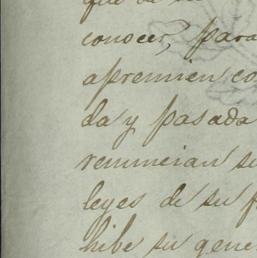 que
conocer, para
apremien co
da y pasada
renuncian su
leyes de su f
hibe su gene